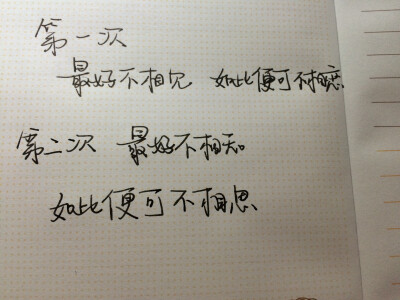 第一次
最好不相见 如此便可不相恋
第二次 最好不相知
如此便可不相思